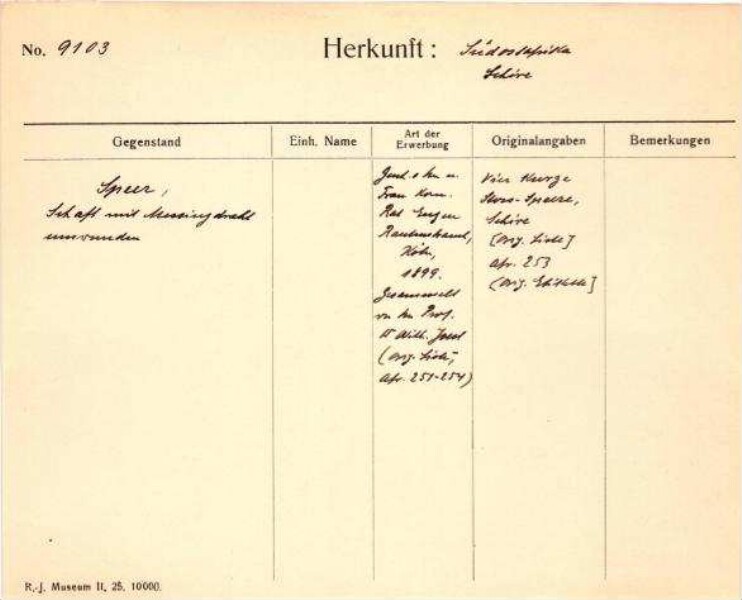 No. 9103
Herkunft: Südostafrika
Schire
Gegenstand
Einh. Name
Art der
Erwerbung
Originalangaben
Bemerkungen
Speer,
Schaft mit Messingdraht
umwunden
Gesch. v. Hn u.
Frau Kom.
Rat Eugen
Rautenstrauch,
Köln,
1899.
Gesammelt
von Hn Prof.
Dr Wilh. Joest
(Orig. Liste,
Afr. 251-254)
Vier kurze
Stoss-Speere,
Schire
[Orig. Liste]
Afr. 253
[Orig. Etikette]
R.-J. Museum II, 25, 10000.